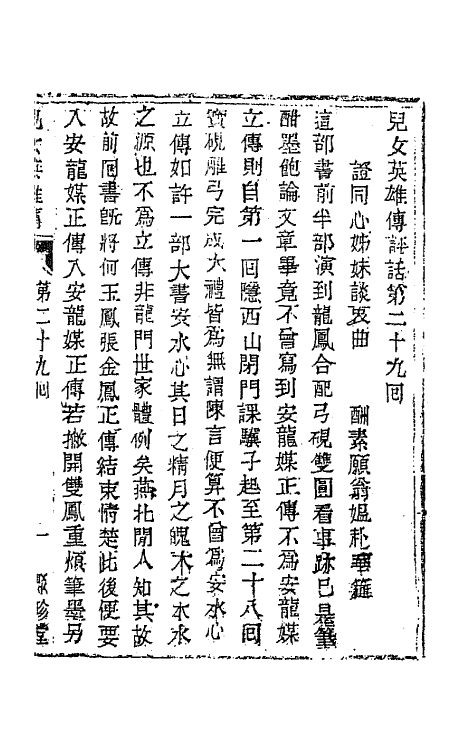 兒女英雄傳評話第二十九回
證同心姊妹談衷曲　酬素願翁媼赴華筵
這部書前半部演到龍鳳合配弓硯雙圓看事跡已是筆
酣墨飽論文章畢竟不曾寫到安龍媒正傳不爲安龍媒
立傳則自第一回隱西山閉門課驥子起至第二十八回
寶硯雕弓完成大禮皆爲無謂陳言便算不曾爲安水心
立傳如許一部大書安水心其日之精月之魄木之本水
之源也不爲立傳非龍門世家體例矣燕北閒人知其故
故前回書旣將何玉鳳張金鳳正傳結束清楚此後便要
入安龍媒正傳入安龍媒正傳若撇開雙鳳重煩筆墨另
兒女英雄傳　第二十九回　一　聚珍堂